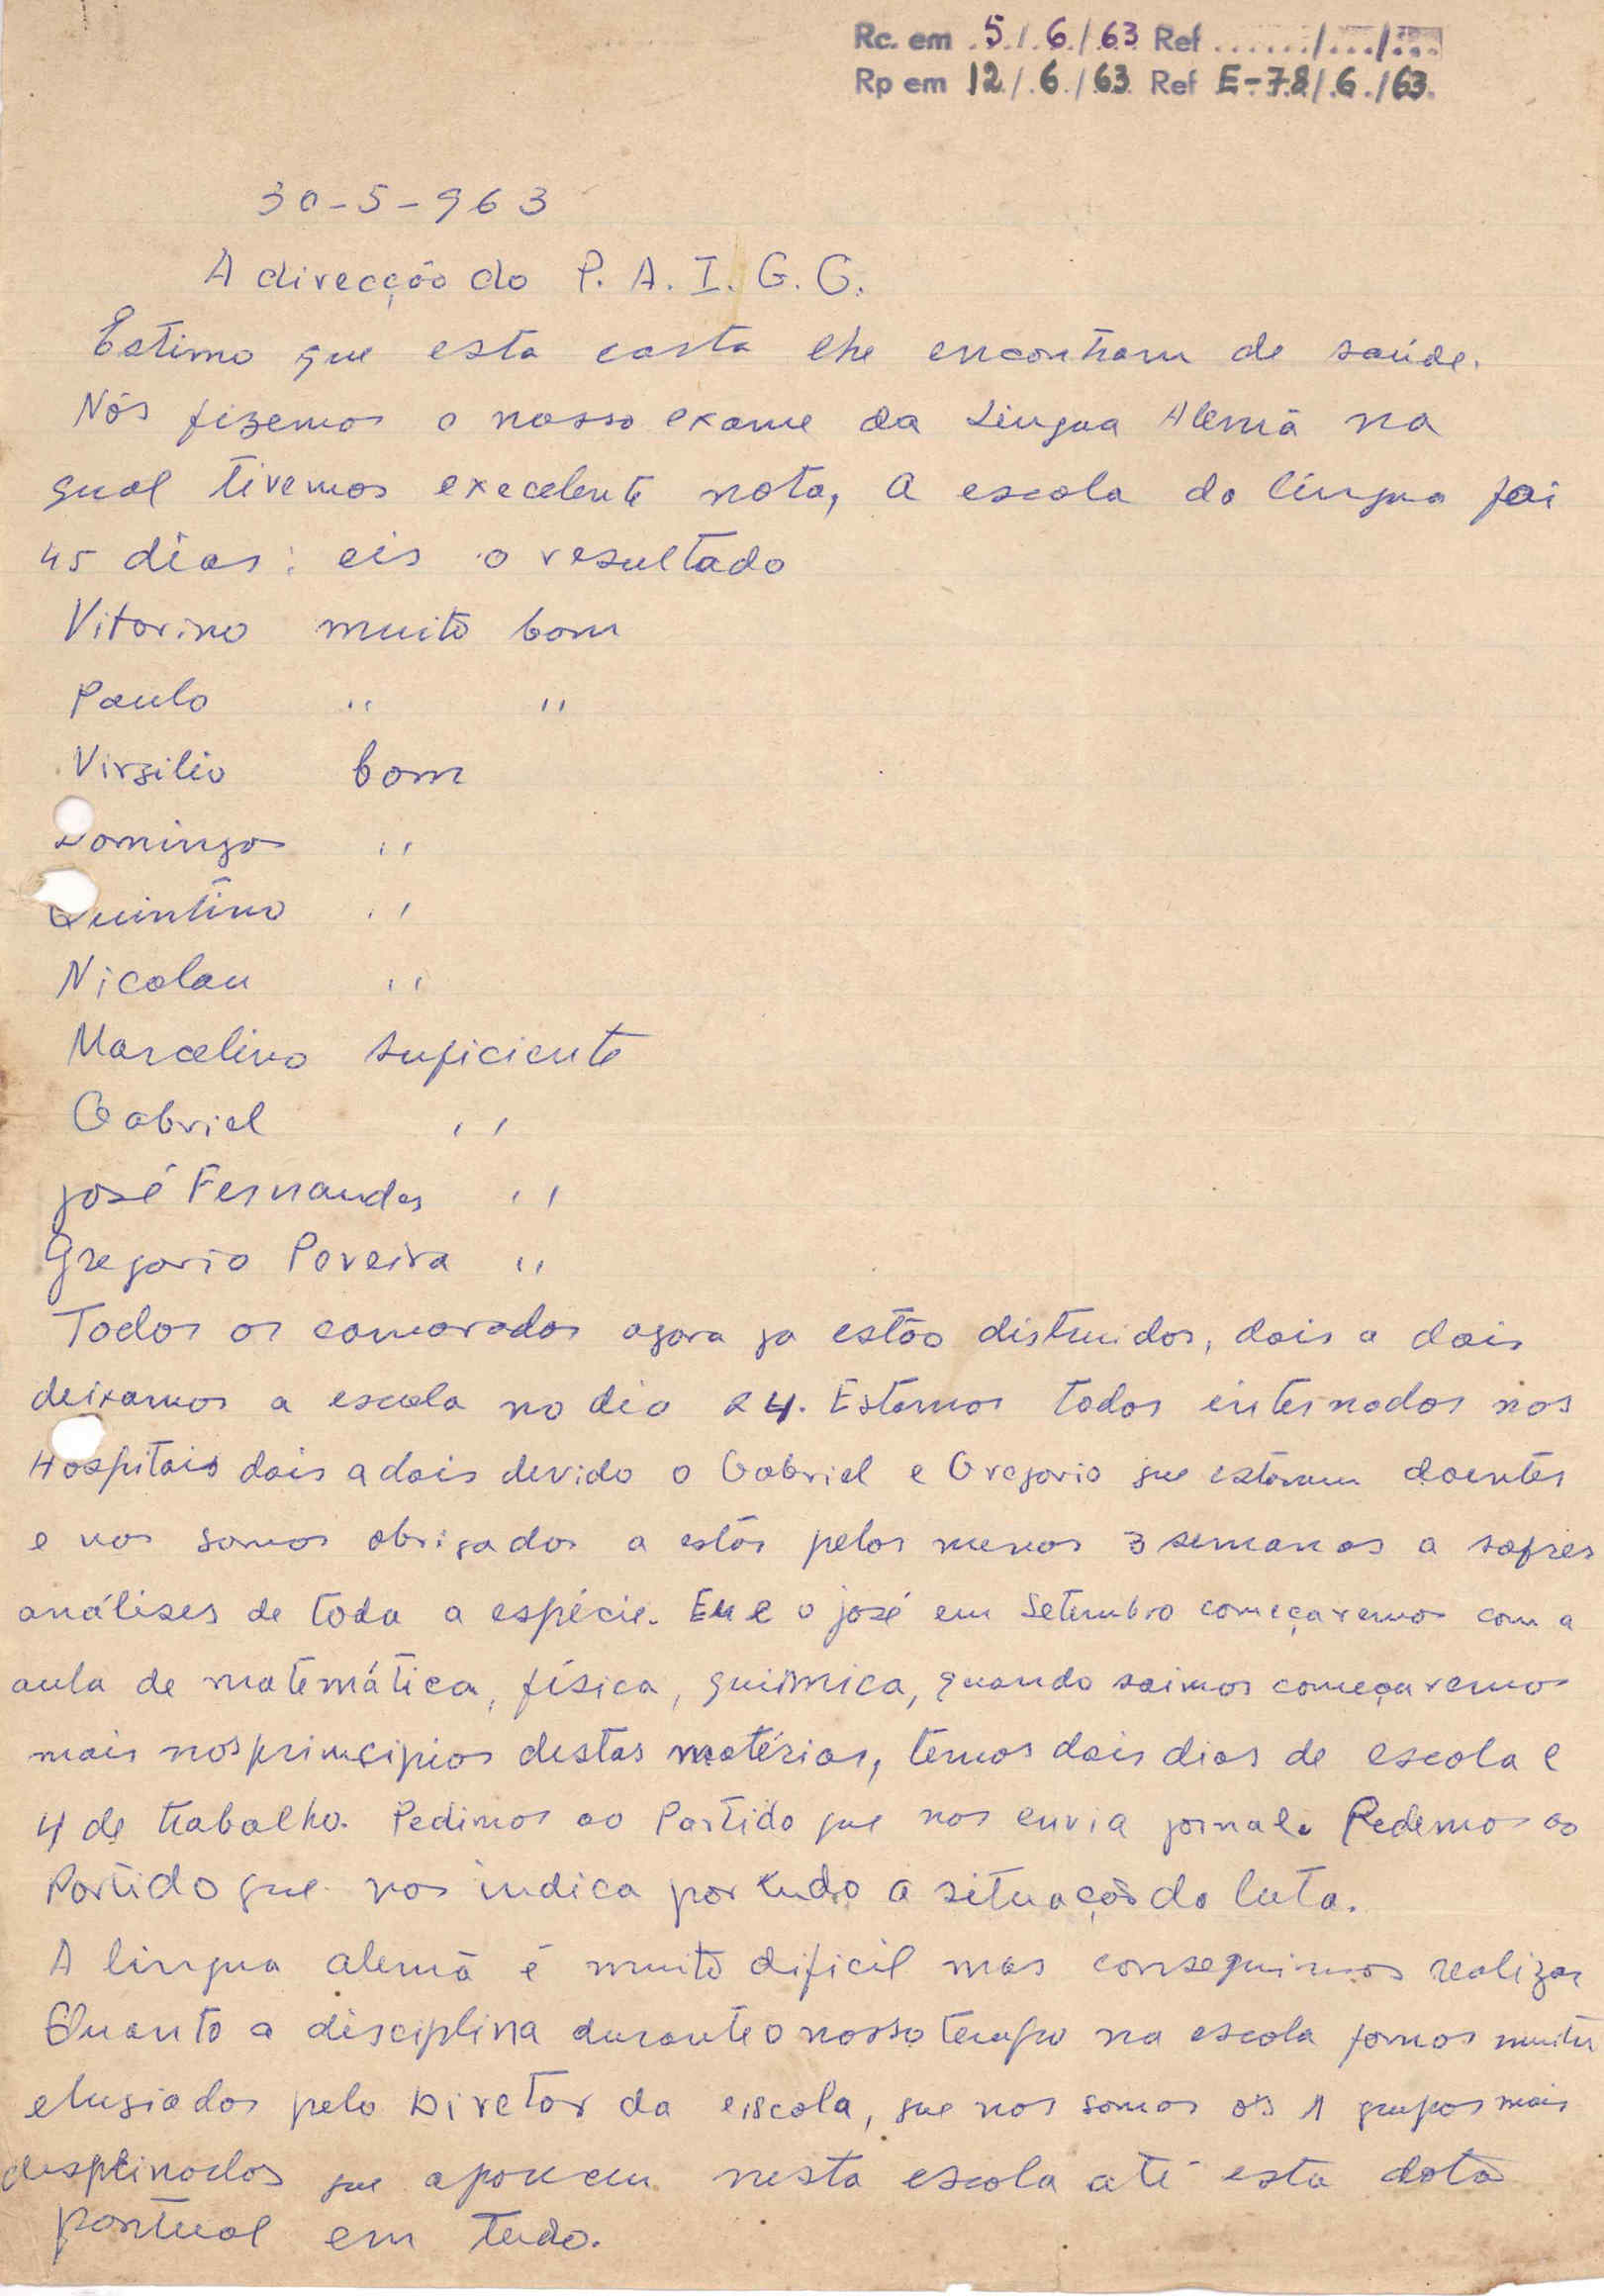 Rc. em 5/6/63 Ref ....../.../...
Rp em 12/6/63 Ref E-78/6/63
30-5-963
A direcção do P. A. I. G. C.
Estimo que esta carta lhe encontram de saúde.
Nós fizemos o nosso exame da Lingua Alemã na
qual tivemos execelente nota, a escola da lingua foi
45 dias: eis o resultado
Vitorino muito bom
Paulo " "
Virgilio bom
Domingos "
Quintino "
Nicolau "
Marcelino suficiente
Gabriel "
José Fernandes "
Gregorio Pereira "
Todos os camaradas agora ja estão distruidos, dois a dois
deixamos a escola no dia 24. Estamos todos internados nos
Hospitais dois a dois devido o Gabriel e Gregorio que estavam doentes
e nos somos obrigados a estár pelos menos 3 semanas a sofrer
análises de toda a espécie. Eu e o josé em Setembro começaremos com a
aula de matemática, física, química, quando saimos começaremos
mais nos principios destas matérias, temos dois dias de escola e
4 de trabalho. Pedimos ao Partido que nos envia jornal. Pedemos ao
Partido que nos indica por tudo a situação da luta.
A lingua alemã é muito dificil mas conseguimos realizar
Quanto a disciplina durante o nosso tempo na escola fomos muito
elugiados pelo Diretor da escola, que nos somos os 1 grupos mais
desplinados que aparecem nesta escola até esta data
pontual em tudo.